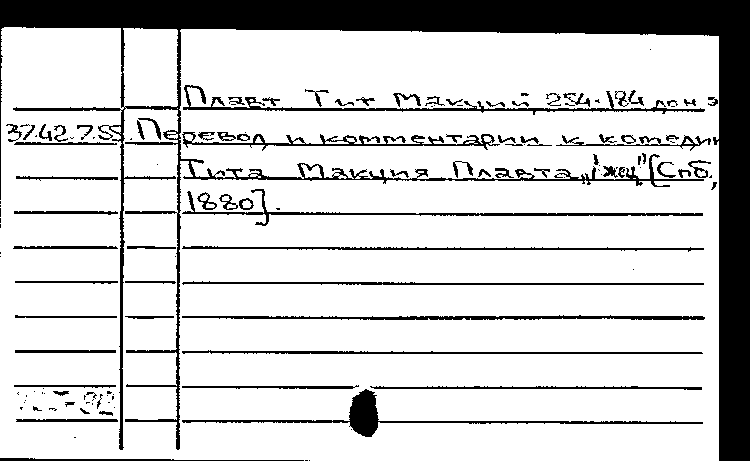 Плавт Тит Макций, 254-184 до н э
37.42.7.55 Перевод и комментарии к комедии
Тита Макция Плавта [Спб,
1880].